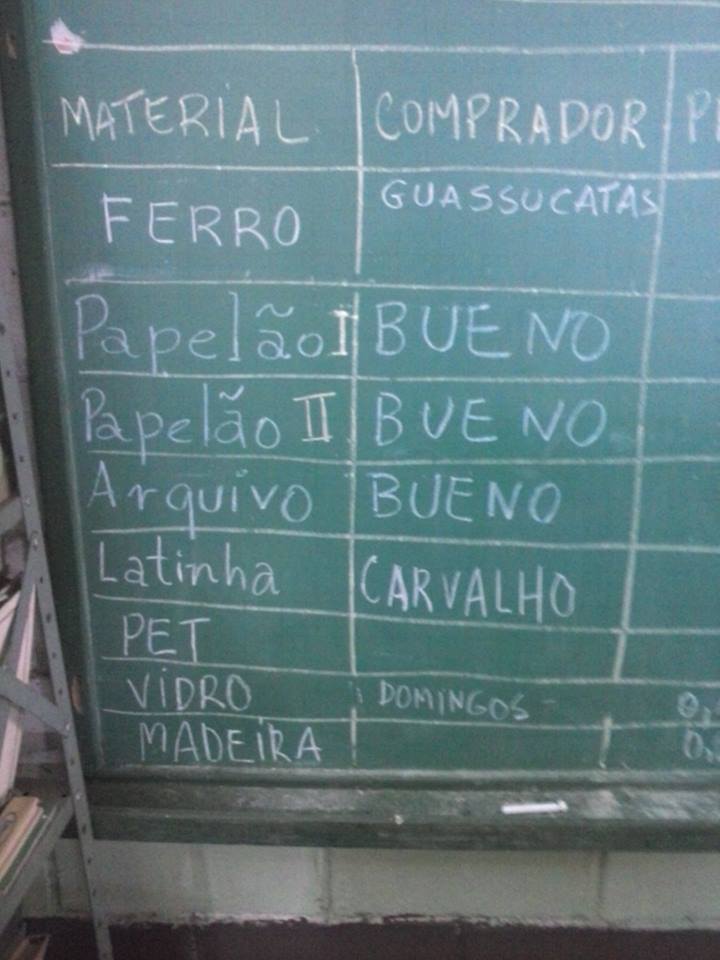 MATERIAL COMPRADOR
FERRO GUASSUCATAS
Papelão I BUENO
Papelão II BUENO
Arquivo BUENO
Latinha CARVALHO
PET
VIDRO DOMINGOS
MADEIRA